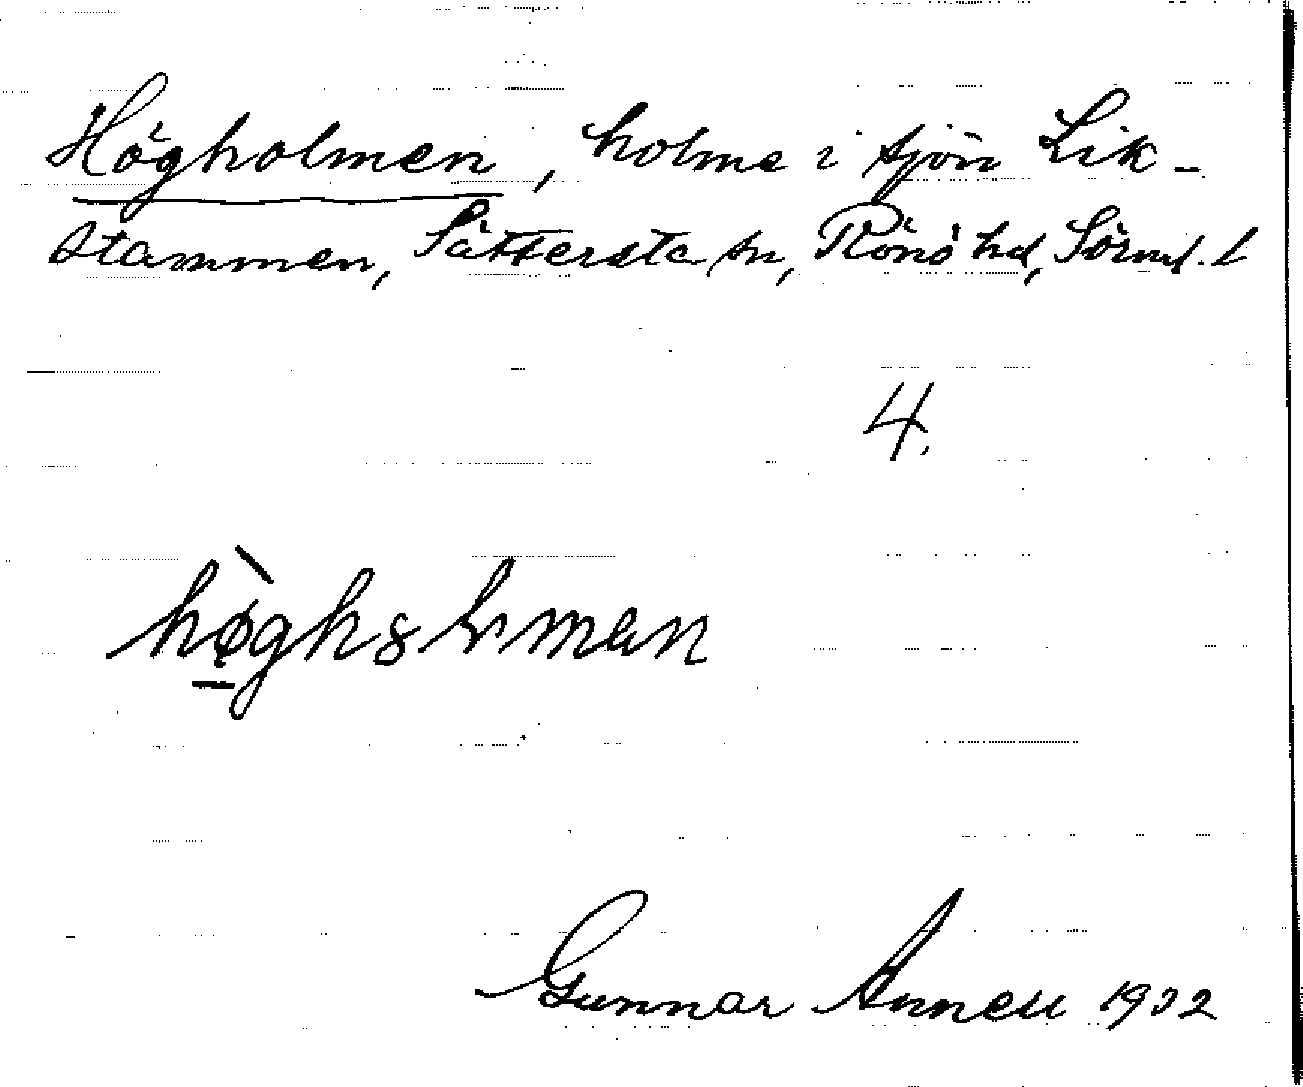 Högholmen, holme i sjön Lik-
stammen, Sättersta sn, Rönö hd, Sörml. l
4.
Gunnar Annell 1932